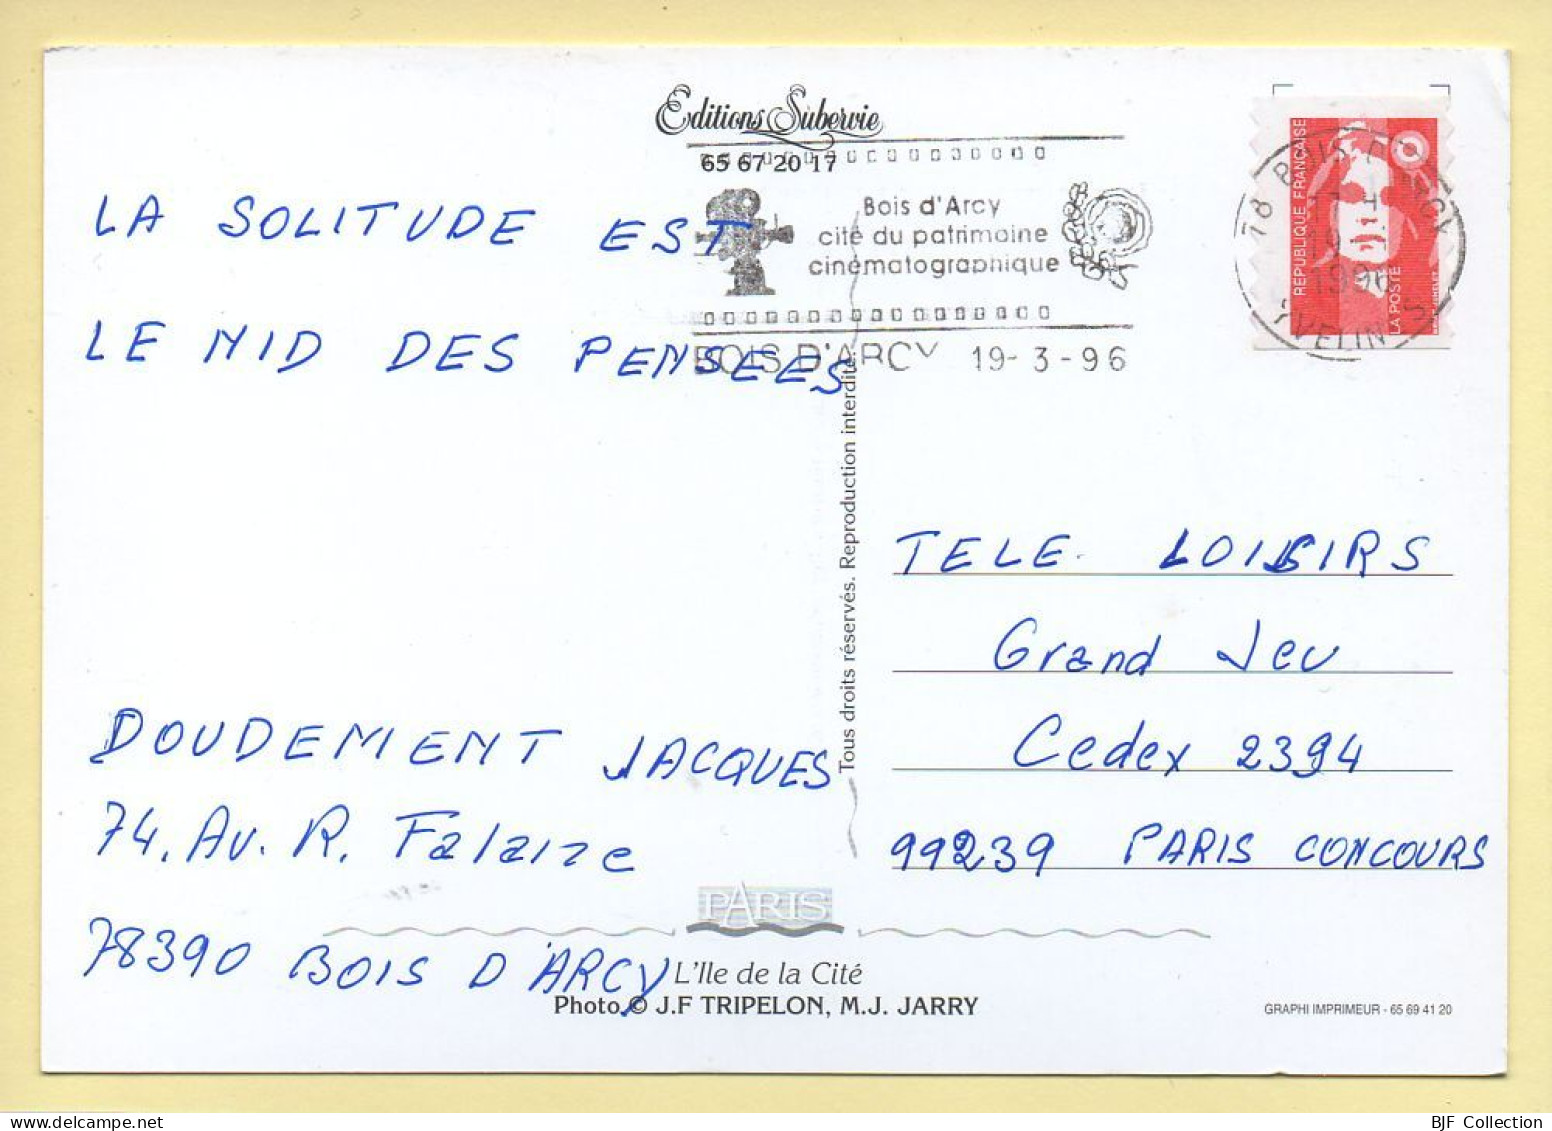 Editions Subervie
65 67 20 17
Bois d'Arcy
cité du patrimoine
cinématographique
BOIS D'ARCY 19-3-96
78 BOIS D'ARCY
19
1996
YVELINES
REPUBLIQUE FRANÇAISE
LA POSTE
LA SOLITUDE EST
LE NID DES PENSEES
DOUDEMENT JACQUES
74, Av. R. Falaize
78390 BOIS D'ARCY
Tous droits réservés. Reproduction interdite.
TELE LOISIRS
Grand Jeu
Cedex 2394
99239 PARIS CONCOURS
PARIS
L'Ile de la Cité
Photo © J.F TRIPELON, M.J. JARRY
GRAPHI IMPRIMEUR - 65 69 41 20
BJF Collection